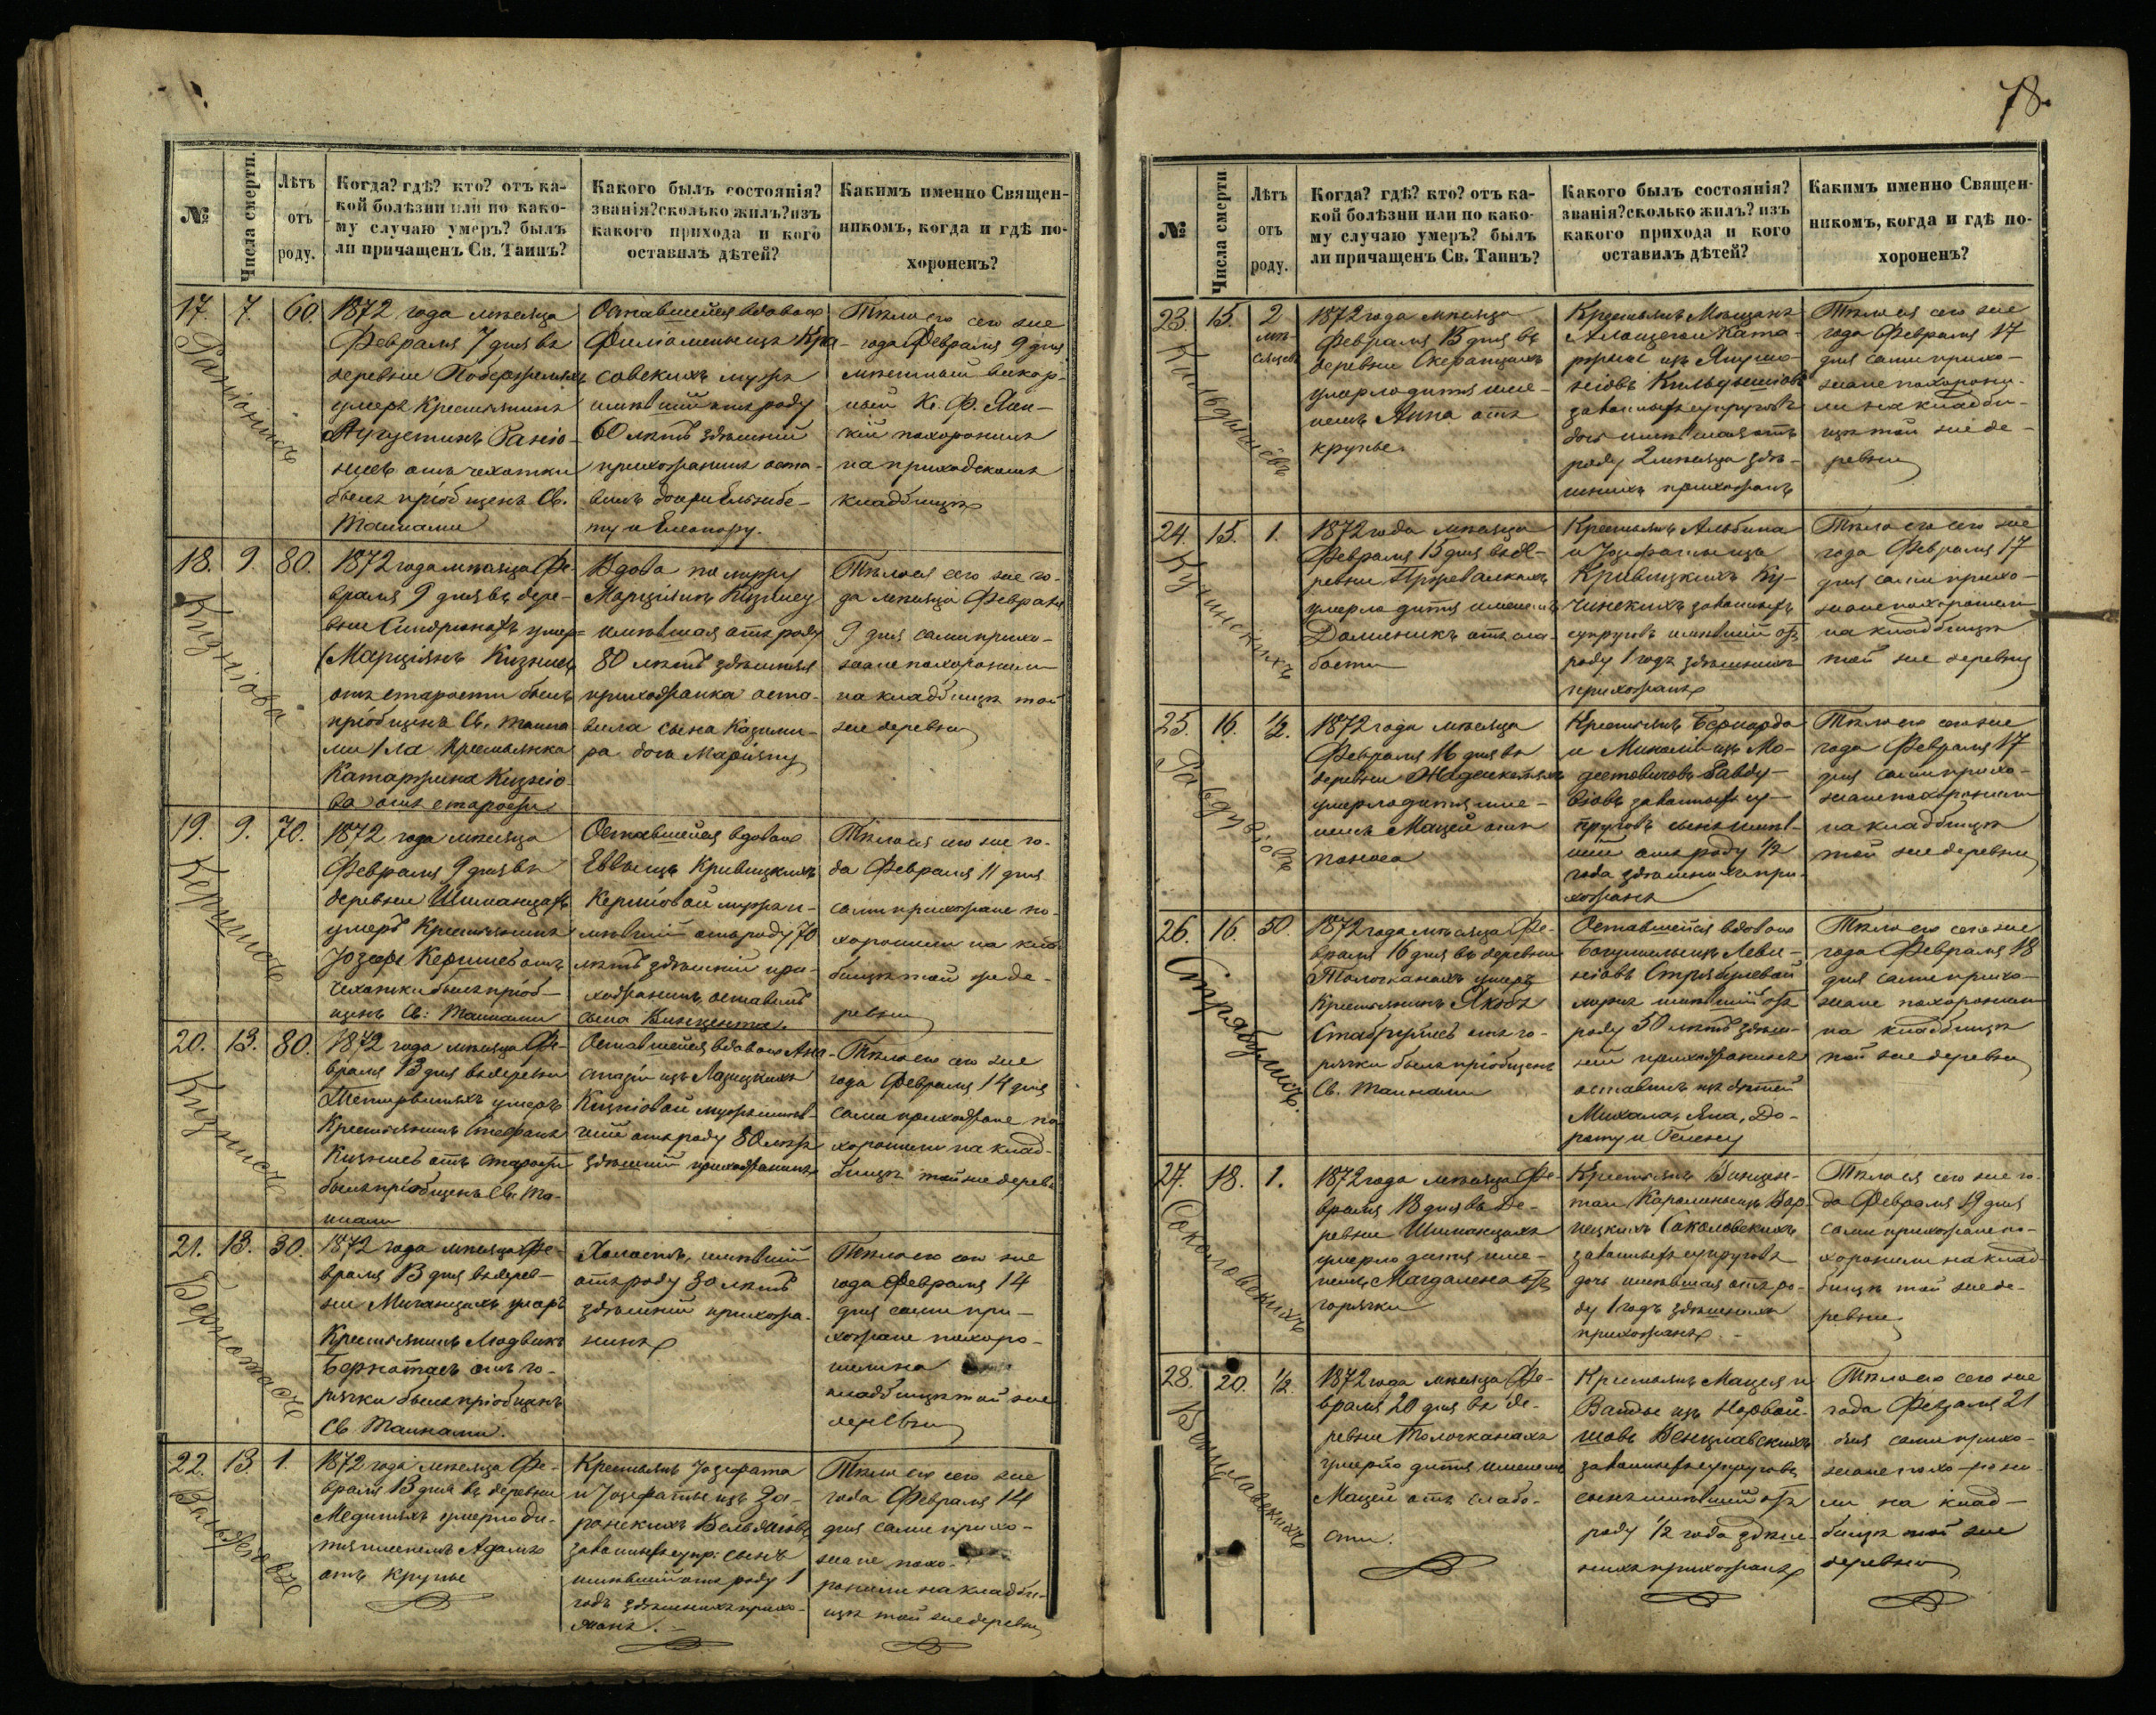 78.
№
Числа смерти.
Лѣтъ
отъ
роду.
Когда? гдѣ? кто? отъ ка-
кой болѣзни или по како-
му случаю умеръ? былъ
ли причащенъ Св. Таинъ?
Какого былъ состоянія?
званія? сколько жилъ? изъ
какого прихода и кого
оставилъ дѣтей?
Какимъ именно Священ-
никомъ, когда и гдѣ по-
хороненъ?
17.
7.
60.
1872 года мѣсяца
Февраля 7 дня въ
деревни
умеръ Крестьянинъ
Августинъ
отъ чахотки
былъ пріобщенъ Св.
Таинами
Оставшейся вдовою
Филіомены изъ Кра-
совскихъ мужъ
имѣвшій отъ роду
60 лѣтъ здѣшній
прихожанинъ оста-
вилъ дочери Ельжбе-
ту и Елеонору.
Тѣло его сего же
года Февраля 9 дня
мѣстный викар-
ный К. Ф. Ян-
кій похоронилъ
на приходскомъ
кладбищѣ
18.
9.
80.
Кузніова
1872 года мѣсяца Фе-
враля 9 дня въ дере-
вни умер=
(Марціянъ Кузнись
отъ старости былъ
пріобщенъ Св. Таина
ми) ла Крестьянка
Катаржина Кузніо-
ва отъ старости
Вдова по мужу
Марціянѣ Кузнису
имѣвшая отъ роду
80 лѣтъ здѣшняя
прихожанка оста-
вила сына Казими-
ра дочь Маріяну
Тѣло ея сего же го-
да мѣсяца Февраля
9 дня сами прихо-
жане похоронили
на кладбищѣ той
же деревни
19.
9.
70.
Кершись
1872 года мѣсяца
Февраля 9 дня въ
деревни Шиманцахъ
умеръ Крестьянинъ
Іозефъ Кершись отъ
чахотки былъ пріоб-
щенъ Св: Таинами
Оставшейся вдовою
Еввы изъ Кривицкихъ
Кершіовой мужъ и-
мѣвшій отъ роду 70
лѣтъ здѣшній при-
хожанинъ оставилъ
сына Винцента.
Тѣло его сего же го-
да Февраля 11 дня
сами прихожане по-
хоронили на клад-
бищѣ той же де-
ревни
20.
13.
80.
Кузнись
1872 года мѣсяца Фе-
враля 13 дня въ деревни
умеръ
Крестьянинъ Стефанъ
Кузнись отъ старости
былъ пріобщенъ Св. Та-
инами
Оставшейся вдовою Ана-
стазіи изъ Лавицкихъ
Кузніовой мужъ имѣв-
шій отъ роду 80 лѣтъ
здѣшній прихожанинъ
Тѣло его сего же
года Февраля 14 дня
сами прихожане по-
хоронили на клад-
бищѣ той же деревн
21.
13.
30.
Бернотась
1872 года мѣсяца Фе-
враля 13 дня въ дерев-
ни Миганцахъ умеръ
Крестьянинъ Людвикъ
Бернотась отъ го-
рячки былъ пріобщенъ
Св Таинами.
Холостъ, имѣвшій
отъ роду 30 лѣтъ
здѣшній прихожа-
нинъ
Тѣло его сего же
года Февраля 14
дня сами при-
хожане похоро-
нили на
кладбищѣ той же
деревни
22.
13.
1.
1872 года мѣсяца Фе-
враля 13 дня въ деревни
умерло ди-
тя именемъ Адамъ
отъ крупы
Крестьянъ Іозефата
и Іозефаты изъ За-
ронскихъ
законныхъ супр: сынъ
имѣвшій отъ роду 1
годъ здѣшнихъ прихо-
жанъ.
Тѣло его сего же
года Февраля 14
дня сами прихо-
жане похо-
ронили на кладби-
щѣ той же деревни
№
Числа смерти
Лѣтъ
отъ
роду.
Когда? гдѣ? кто? отъ ка-
кой болѣзни или по како-
му случаю умеръ? былъ
ли причащенъ Св. Таинъ?
Какого былъ состоянія?
званія? сколько жилъ? изъ
какого прихода и кого
оставилъ дѣтей?
Какимъ именно Священ-
никомъ, когда и гдѣ по-
хороненъ?
23.
15.
2
мѣ-
сяцевъ
1872 года мѣсяца
Февраля 15 дня въ
деревни
умерло дитя име-
немъ Анна отъ
крупы.
Крестьянъ
и Ката-
ржины изъ Янушо-
ніовъ
законныхъ супруговъ
дочь имѣвшая отъ
роду 2 мѣсяца здѣ-
шнихъ прихожанъ
Тѣло ея сего же
года Февраля 17
дня сами прихо-
жане похорони-
ли на кладби-
щѣ той же де-
ревни
24.
15.
1.
Кучинскихъ
1872 года мѣсяца
Февраля 15 дня въ де-
ревни
умерло дитя именемъ
Доминикъ отъ сла-
бости
Крестьянъ Альбина
и Іозефаты изъ
Кривицкихъ Ку-
чинскихъ законныхъ
супруговъ имѣвшій отъ
роду 1 годъ здѣшнихъ
прихожанъ
Тѣло его сего же
года Февраля 17
дня сами прихо-
жане похоронили
на кладбищѣ
той же деревни
25.
16.
½.
Равдувіовъ
1872 года мѣсяца
Февраля 16 дня въ
деревни
умерло дитя име-
немъ Мацей отъ
поноса
Крестьянъ Бернарда
и Михалины изъ Мо-
дестовичовъ Равду-
віовъ законныхъ су-
пруговъ сынъ имѣв-
шій отъ роду ½
года здѣшнихъ при-
хожанъ
Тѣло его сего же
года Февраля 17
дня сами прихо-
жане похоронили
на кладбищѣ
той же деревни
26.
16.
50.
1872 года мѣсяца Фе-
враля 16 дня въ деревни
Толочканахъ умеръ
Крестьянинъ Якобъ
отъ го-
рячки былъ пріобщенъ
Св. Таинами
Оставшейся вдовою
Богумилы изъ Леви-
ніовъ
мужъ имѣвшій отъ
роду 50 лѣтъ здѣш-
ній прихожанинъ
оставилъ изъ дѣтей
Михала, Яна, До-
роту и Гелену
Тѣло его сего же
года Февраля 18
дня сами прихо-
жане похоронили
на кладбищѣ
той же деревни
27.
18.
1.
Соколовскихъ
1872 года мѣсяца Фе-
враля 18 дня въ де-
ревни Шиманцахъ
умерло дитя име-
немъ Магдалена отъ
горячки
Крестьянъ Винцен-
таи Каролины изъ Вор-
нецкихъ Соколовскихъ
законныхъ супруговъ
дочь имѣвшая отъ ро-
ду 1 годъ здѣшнихъ
прихожанъ
Тѣло ея сего же го-
да Февраля 19 дня
сами прихожане по-
хоронили на клад-
бищѣ той же де-
ревни
28.
20.
½.
Венцлавскихъ
1872 года мѣсяца Фе-
враля 20 дня въ де-
ревни Толочканахъ
умерло дитя именемъ
Мацей отъ слабо-
сти.
Крестьянъ Мацея и
Ванды изъ Норвой-
шовъ Венцлавскихъ
законныхъ супруговъ
сынъ имѣвшій отъ
роду ½ года здѣш-
нихъ прихожанъ
Тѣло его сего же
года Февраля 21
дня сами прихо-
жане похорони-
ли на клад-
бищѣ той же
деревни